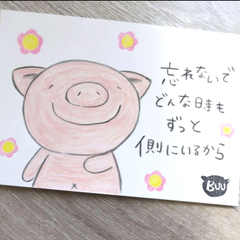 忘れないで
どんな時も
ずっと
側にいるから
BUU